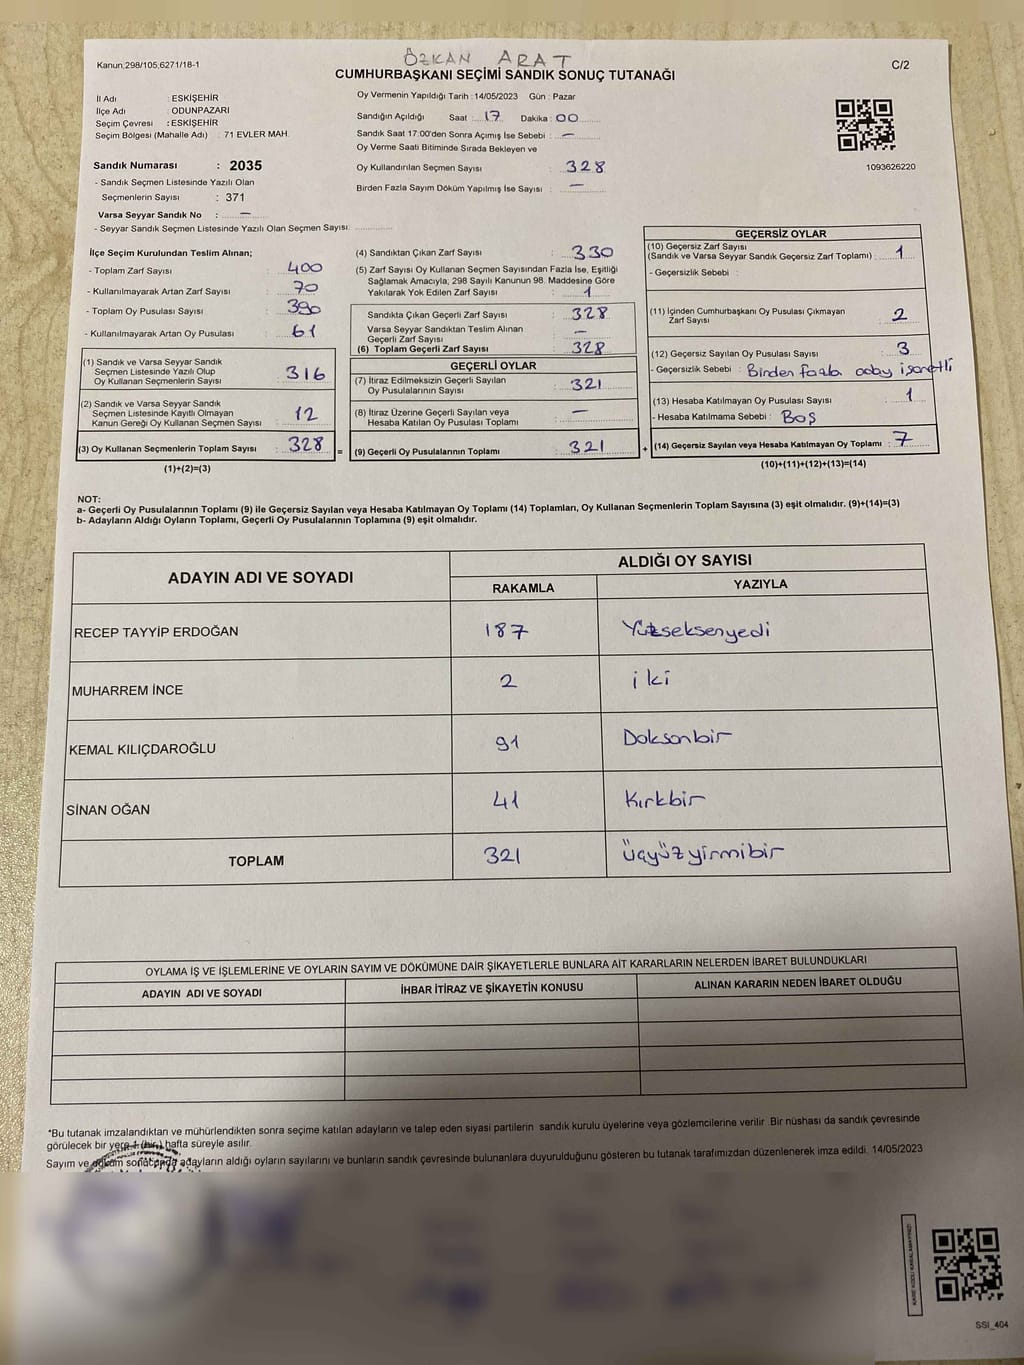 ÖZKAN ARAT
Kanun;298/105,6271/18-1
CUMHURBAŞKANI SEÇİMİ SANDIK SONUÇ TUTANAĞI
C/2
İl Adı : ESKİŞEHİR
İlçe Adı : ODUNPAZARI
Seçim Çevresi : ESKİŞEHİR
Seçim Bölgesi (Mahalle Adı) : 71 EVLER MAH.
Sandık Numarası : 2035
- Sandık Seçmen Listesinde Yazılı Olan
Seçmenlerin Sayısı : 371
Varsa Seyyar Sandık No : —
- Seyyar Sandık Seçmen Listesinde Yazılı Olan Seçmen Sayısı:
Oy Vermenin Yapıldığı Tarih : 14/05/2023 Gün : Pazar
Sandığın Açıldığı Saat : 17 Dakika : 00
Sandık Saat 17:00'den Sonra Açımış İse Sebebi : —
Oy Verme Saati Bitiminde Sırada Bekleyen ve
Oy Kullandırılan Seçmen Sayısı : 328
Birden Fazla Sayım Döküm Yapılmış İse Sayısı : —
1093626220
İlçe Seçim Kurulundan Teslim Alınan;
- Toplam Zarf Sayısı : 400
- Kullanılmayarak Artan Zarf Sayısı : 70
- Toplam Oy Pusulası Sayısı : 390
- Kullanılmayarak Artan Oy Pusulası : 61
(1) Sandık ve Varsa Seyyar Sandık
Seçmen Listesinde Yazılı Olup
Oy Kullanan Seçmenlerin Sayısı : 316
(2) Sandık ve Varsa Seyyar Sandık
Seçmen Listesinde Kayıtlı Olmayan
Kanun Gereği Oy Kullanan Seçmen Sayısı : 12
(3) Oy Kullanan Seçmenlerin Toplam Sayısı : 328
(1)+(2)=(3)
(4) Sandıktan Çıkan Zarf Sayısı : 330
(5) Zarf Sayısı Oy Kullanan Seçmen Sayısından Fazla İse, Eşitliği
Sağlamak Amacıyla, 298 Sayılı Kanunun 98. Maddesine Göre
Yakılarak Yok Edilen Zarf Sayısı : 1
Sandıkta Çıkan Geçerli Zarf Sayısı : 328
Varsa Seyyar Sandıktan Teslim Alınan
Geçerli Zarf Sayısı : —
(6) Toplam Geçerli Zarf Sayısı : 328
GEÇERLİ OYLAR
(7) İtiraz Edilmeksizin Geçerli Sayılan
Oy Pusulalarının Sayısı : 321
(8) İtiraz Üzerine Geçerli Sayılan veya
Hesaba Katılan Oy Pusulası Toplamı : —
= (9) Geçerli Oy Pusulalarının Toplamı : 321 +
GEÇERSİZ OYLAR
(10) Geçersiz Zarf Sayısı
(Sandık ve Varsa Seyyar Sandık Geçersiz Zarf Toplamı) : 1
- Geçersizlik Sebebi :
(11) İçinden Cumhurbaşkanı Oy Pusulası Çıkmayan
Zarf Sayısı : 2
(12) Geçersiz Sayılan Oy Pusulası Sayısı : 3
- Geçersizlik Sebebi : Birden fazla işaretli
(13) Hesaba Katılmayan Oy Pusulası Sayısı : 1
- Hesaba Katılmama Sebebi : Boş
(14) Geçersiz Sayılan veya Hesaba Katılmayan Oy Toplamı : 7
(10)+(11)+(12)+(13)=(14)
NOT:
a- Geçerli Oy Pusulalarının Toplamı (9) ile Geçersiz Sayılan veya Hesaba Katılmayan Oy Toplamı (14) Toplamları, Oy Kullanan Seçmenlerin Toplam Sayısına (3) eşit olmalıdır. (9)+(14)=(3)
b- Adayların Aldığı Oyların Toplamı, Geçerli Oy Pusulalarının Toplamına (9) eşit olmalıdır.
ADAYIN ADI VE SOYADI
ALDIĞI OY SAYISI
RAKAMLA YAZIYLA
RECEP TAYYİP ERDOĞAN 187 Yükseksenyedi
MUHARREM İNCE 2 iki
KEMAL KILIÇDAROĞLU 91 Doksanbir
SİNAN OĞAN 41 Kırkbir
TOPLAM 321 Üçyüzyirmibir
OYLAMA İŞ VE İŞLEMLERİNE VE OYLARIN SAYIM VE DÖKÜMÜNE DAİR ŞİKAYETLERLE BUNLARA AİT KARARLARIN NELERDEN İBARET BULUNDUKLARI
ADAYIN ADI VE SOYADI İHBAR İTİRAZ VE ŞİKAYETİN KONUSU ALINAN KARARIN NEDEN İBARET OLDUĞU
*Bu tutanak imzalandıktan ve mühürlendikten sonra seçime katılan adayların ve talep eden siyasi partilerin sandık kurulu üyelerine veya gözlemcilerine verilir. Bir nüshası da sandık çevresinde
görülecek bir yere 1 (bir) hafta süreyle asılır.
Sayım ve döküm sonucunda adayların aldığı oyların sayılarını ve bunların sandık çevresinde bulunanlara duyurulduğunu gösteren bu tutanak tarafımızdan düzenlenerek imza edildi. 14/05/2023
SSI_404